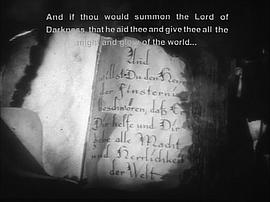 And if thou would summon the Lord of
Darkness, that he aid thee and give thee all the
might and glow of the world...
Und
willst Du den Herrn
der Finsternis
beschwören, daß Er
Dir helfe und Dir
gebe alle Macht
und Herrlichkeit
der Welt